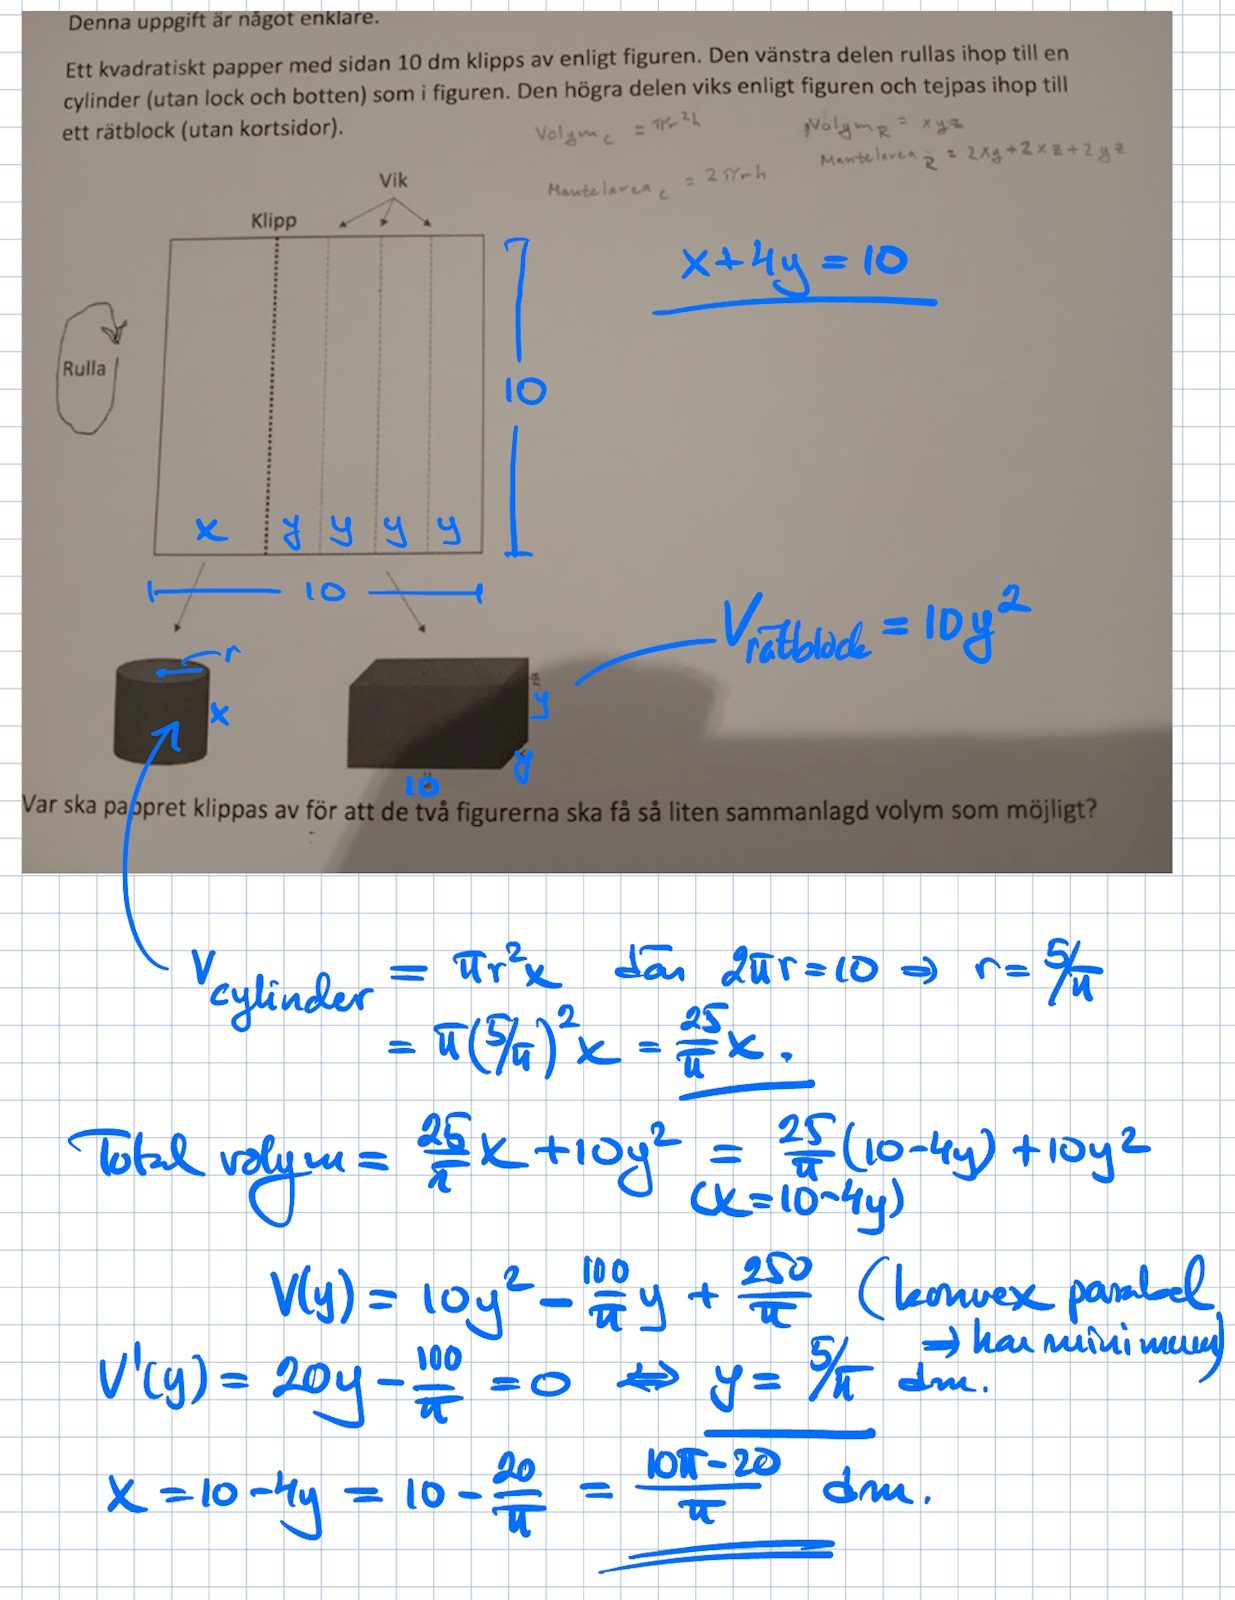 Denna uppgift är något enklare.
Ett kvadratiskt papper med sidan 10 dm klipps av enligt figuren. Den vänstra delen rullas ihop till en
cylinder (utan lock och botten) som i figuren. Den högra delen viks enligt figuren och tejpas ihop till
ett rätblock (utan kortsidor).
Volym_C = πr²h
Volym_R = xyz
Mantelarea_C = 2πrh
Mantelarea_R = 2xy+2xz+2yz
Vik
Klipp
x+4y=10
Rulla
10
x y y y y
10
V_rätblock = 10y²
r
x
y
y
10
Var ska pappret klippas av för att de två figurerna ska få så liten sammanlagd volym som möjligt?
V_cylinder = πr²x där 2πr=10 ⇒ r=5/π
= π(5/π)²x = 25/π x.
Total volym = 25/π x + 10y² = 25/π (10-4y) + 10y²
(x=10-4y)
V(y) = 10y² - 100/π y + 250/π (konvex parabel
→ har minimum)
V'(y) = 20y - 100/π = 0 ⇔ y = 5/π dm.
x = 10-4y = 10 - 20/π = 10π-20/π dm.